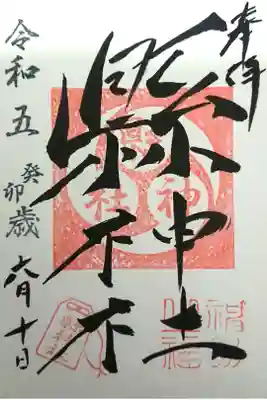 奉拝
縣神社
令和五癸卯歳六月十日
縣神社